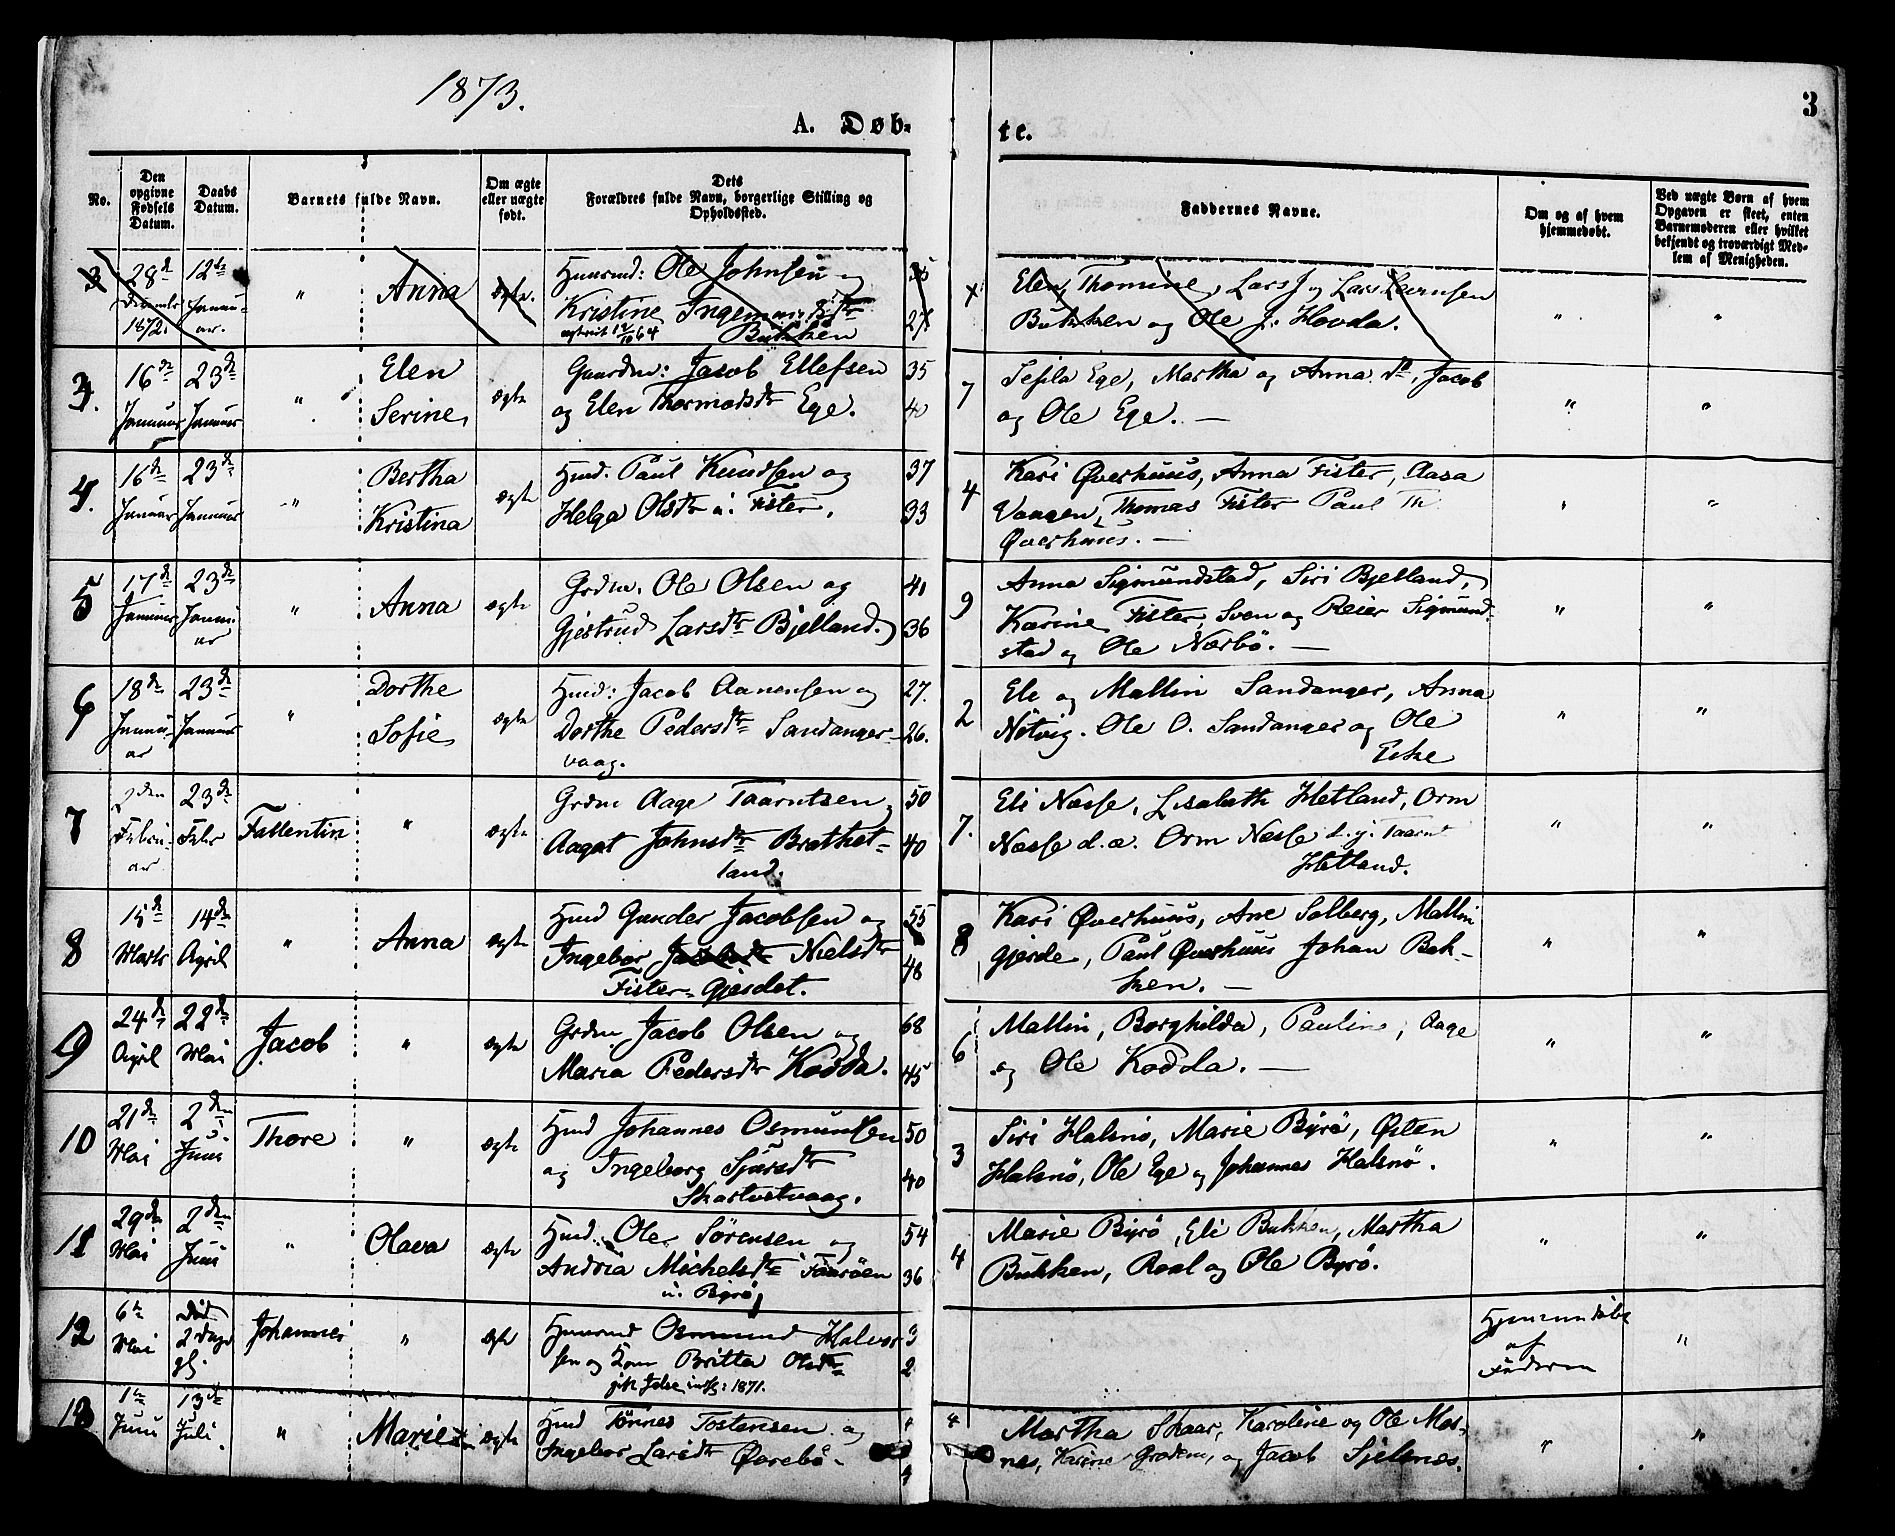 1873.
3
A. Døb-
te.
No.
Den opgivne Fødsels Datum.
Daabs Datum.
Barnets fulde Navn.
Om ægte eller uægte født.
Dets Forældres fulde Navn, borgerlige Stilling og Opholdssted.
Faddernes Navne.
Om og af hvem hjemmedøbt.
Ved uægte Børn af hvem Opgaven er skeet, enten Barnemoderen eller hvilket bekjendt og troværdigt Medlem af Menigheden.
3 28d 12te " Anna ægte. Huusmd: Ole Johnsen og 35 x Elen, Thomine, Lars J og Lars
1872. Januar. Kristine 27 og Ole J. Hovda. " "
3. 16de 23de " Elen ægte Gaardm: Jacob Ellefsen 35 7 Ege, Martha og Anna do, Jacob " "
Januar Januar Serine og Elen Thormodsdtr Ege. 40 og Ole Ege. —
4. 16de 23de " Bertha ægte Husmd. Paul Knudsen og 37 4 Kari Øverhuus, Anna Fister, Aasa " "
Januar Januar Kristina Helga Olsdtr Fister. 33 Vaagen, Thomas Fister Paul Th
Øverhuus. —
5 17de 23de " Anna ægte Grdm. Ole Olsen og 41 9 Anna Sigmundstad, Siri Bjelland, " "
Januar Januar Gjertrud Larsdtr Bjelland. 36 Karine Fister, Sven og Reier Sigmund-
stad og Ole Nærbö. —
6 18de 23de " Dorthe ægte Husmd: Jacob Aanensen og 27. 2 Eli og Mallin Sandanger, Anna " "
Januar Januar Sofie Dorthe Pedersdtr Sandanger- 26. Nötvig. Ole O. Sandanger og Ole
vaag. Eske
7 2den 23de Fallentin " ægte Grdm Aage Taarntsen 50 7. Eli Næsse, Lisabeth Hetland, Orm " "
Februar Febr Aagat Johnsdtr 40 Næsse d.æ. Orm Næsse d.y. Taarnt
land. Hetland.
8 15de 14de " Anna ægte Husmd Gunder Jacobsen og 55 8 Kari Øverhuus, Ane Solberg, Mallin " "
Marts April Ingebor Nielsdtr 48 gjerde, Paul Øverhuus Johan Bak-
Fister-Gjerdet. ken. —
9 24de 22de Jacob " ægte Grdm. Jacob Olsen og 68 6 Mallin, Borghilda, Pauline, Aage " "
April Mai Maria Pedersdtr Kodda. 45 og Ole Kodda. —
10 21de 2den Thore " ægte Husmd Johannes Osmundsen 50 3 Siri Halsnö, Marie Byrö, Østen " "
Mai Juni og Ingeborg Sjursdtr 40 Halsnö, Ole Ege og Johannes Halsnø.
Skartvetvaag.
11 29de 2den " Olava ægte Husmd. Ole Sörensen og 54 4 Marie Byrö, Eli Bukken, Martha " "
Mai Juni Andria Michelsdtr Faaröen 36 Bukken, Roal og Ole Byrø.
Byrö
12 6te Död Johannes " ægte Huusmd Osmund Halvor- 3 Hjemmedöbt "
Mai 2 Dage sen og Kone Britta Olsdtr 2 af
gl. 1871. Faderen
13 1te 13de " Marie ægte Husmd Tönnes Tostensen og 4 Martha Skaar, Karoline og Ole Mos- " "
Juni Juli. Ingebor Larsdtr Øvrebö- nes, Karine og Jacob Sjelsnæs.